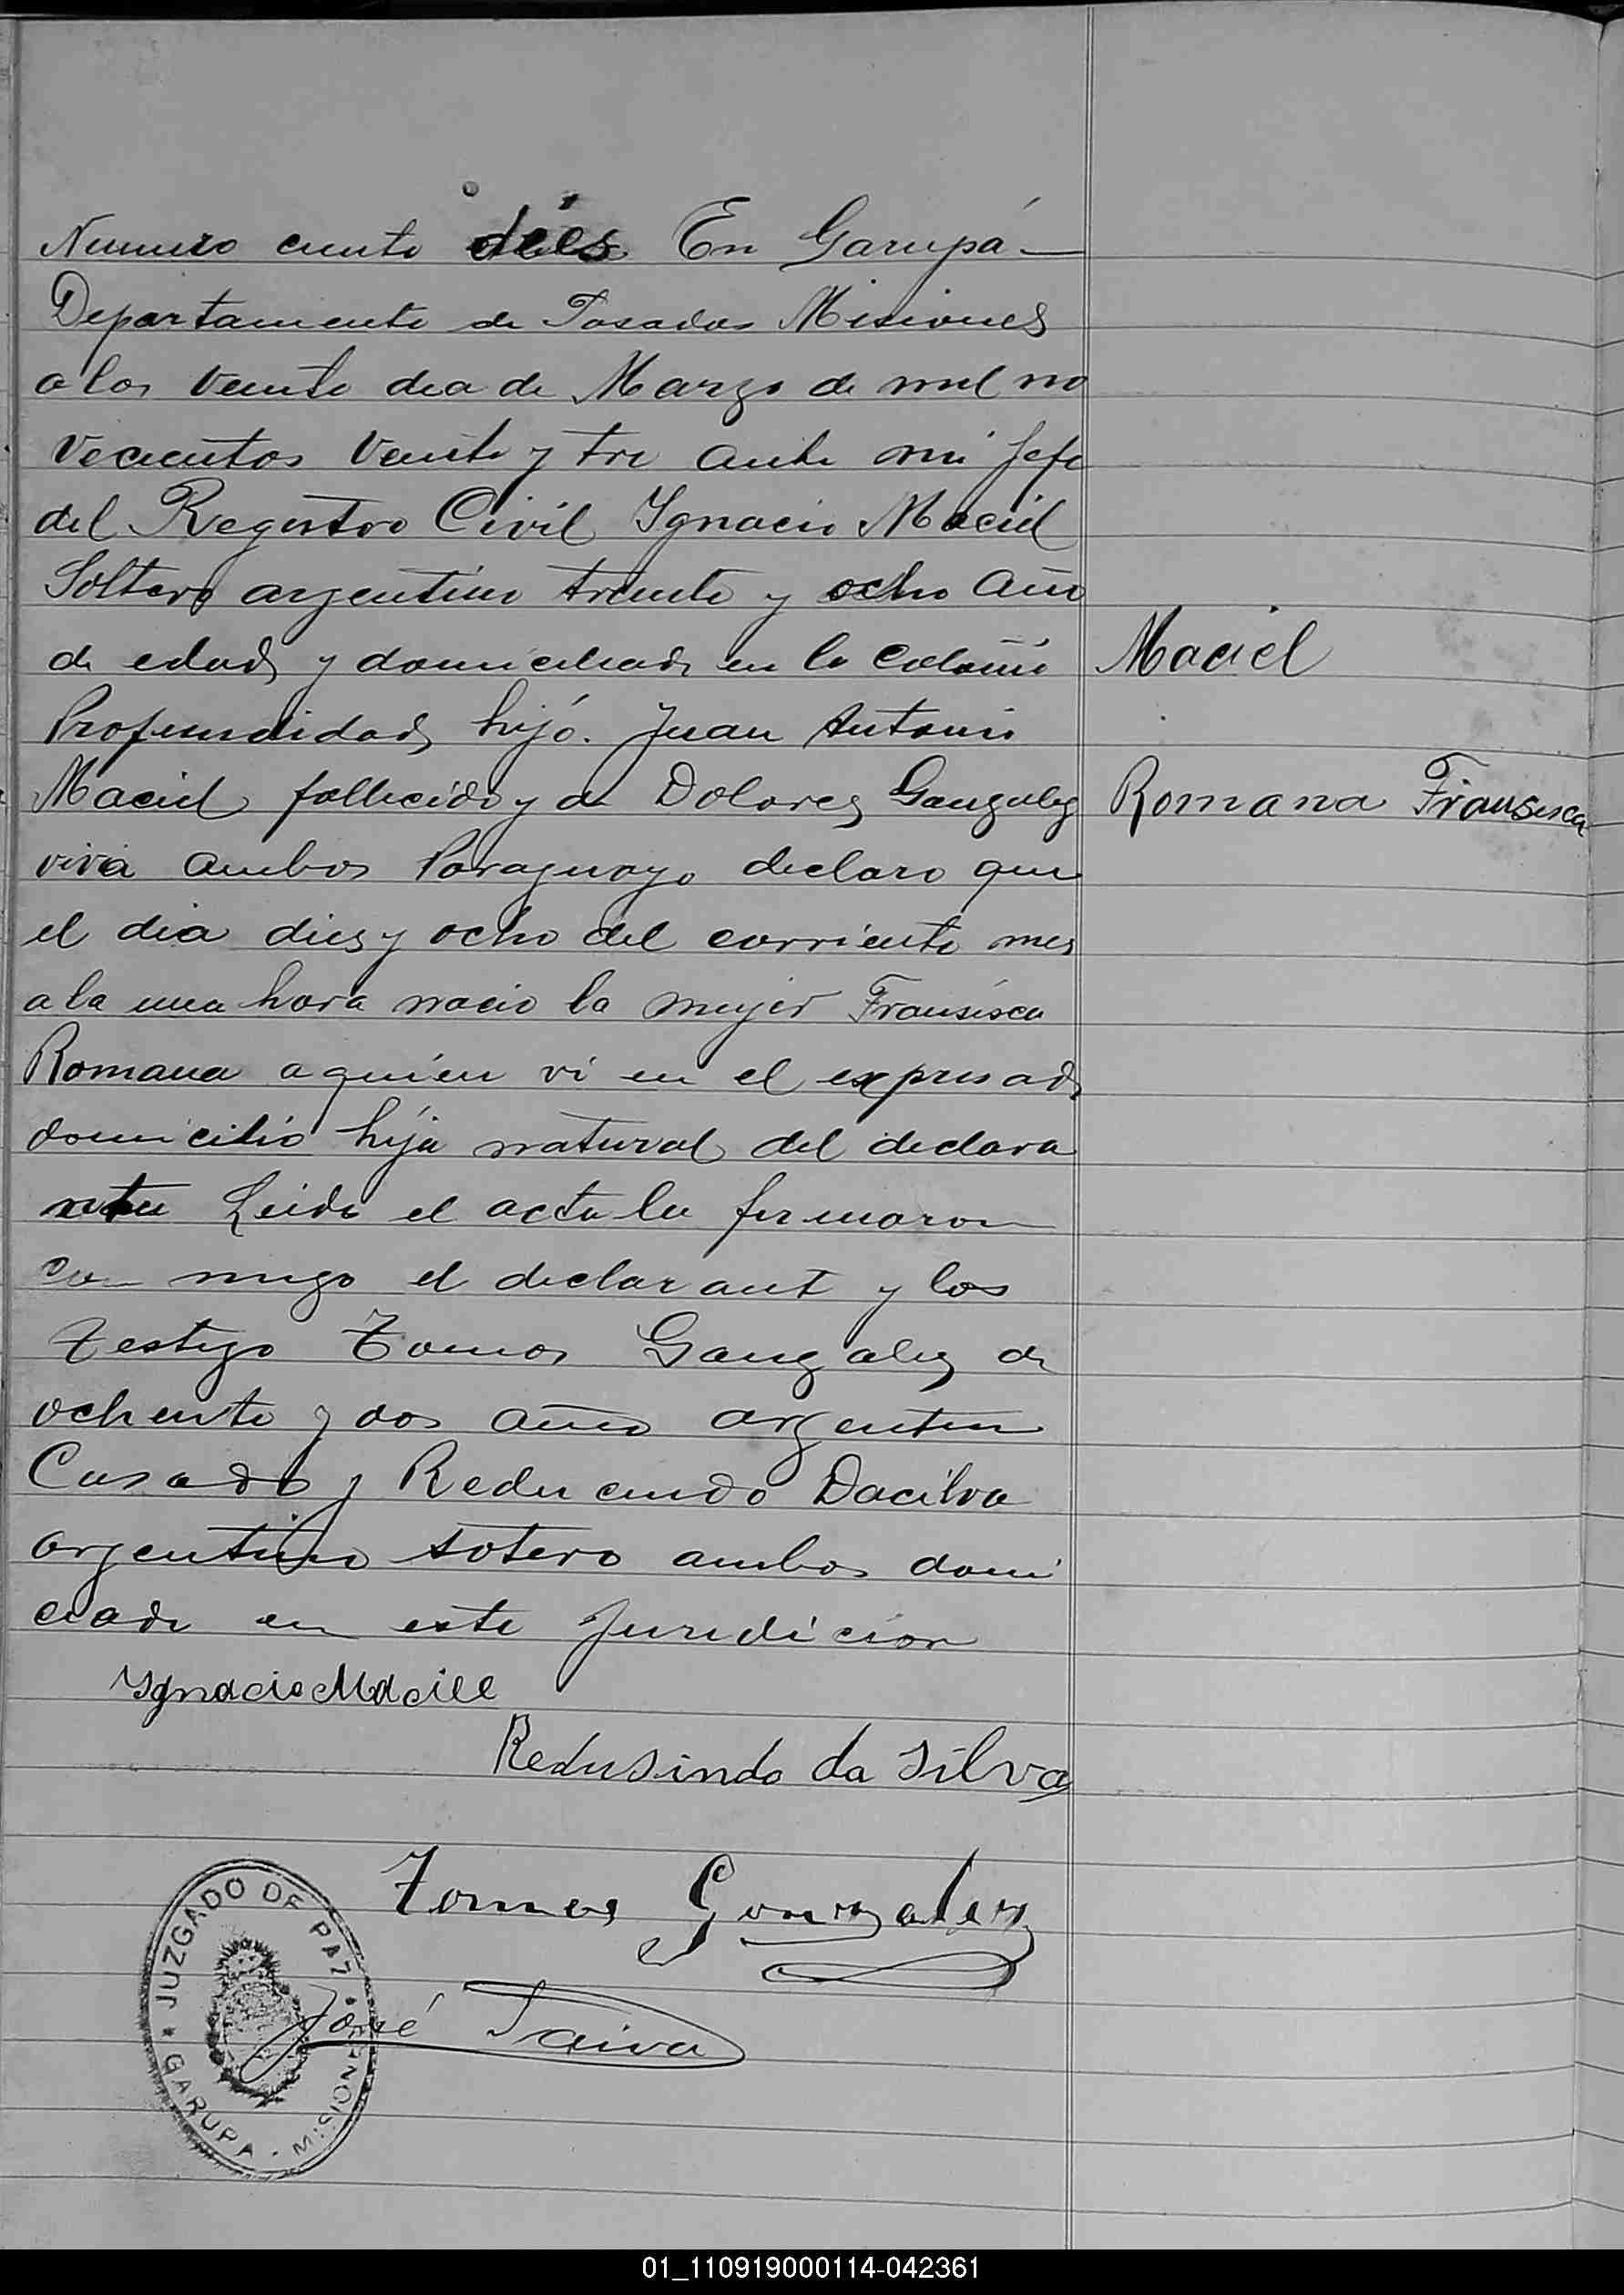 Numero ciento diés En Garupá
Departamento de Posadas Misiones
a los veinte dia de Marzo de mil no
vecientos veinte y tre ante mi Jefe
del Registro Civil Ygnacio Maciel
Soltero argentino treinta y ocho año
de edad y domiciliado en la Colonia
Maciel
Profundidad hijó. Juan Antonio
Maciel fallecido y de Dolores Gonzalez
Romana Fransisca
viva ambos Paraguayo declaro que
el dia dies y ocho del corriente mes
a la una hora nacio la mujer Fransisca
Romana a quien vi en el expresado
domicilio hija natural del declara
nte Leida el acta la firmaron
con migo el declarant y los
testigo Tomas Gonzalez de
ochenta y dos año argentin
Casado y Reducindo Dacilva
argentino sotero ambos domi
ciado en este Juridicion
Ygnacio Maciel
Redusindo da Silva
Tomas Gonzalez
José Paiva
JUZGADO DE PAZ
GARUPA - MISIONES
01_110919000114-042361